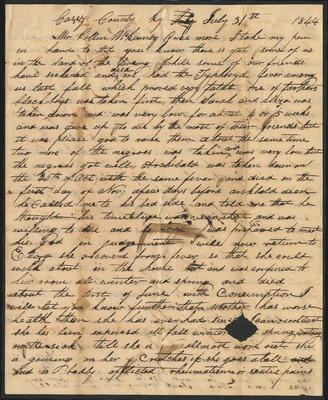 Casey County Ky July 31st 1844
Mr. Collin McKinney Once more I take my pen
in hand to let you know there is yet some of us
in the land of the living. While some of our friends
have sickened and died we had the Typhoyd fever among
us last fall which proved very fatal. one of fathers
black boys was taken first, then Sarah and Eliza was
taken down and was very low for about 4 or 5 weeks
and was given up to die by the most of their friends but
it was plese god to raise them about the same time
two more of the negroes was taken was low but
the negros got well. Archibald was taken down on
the 20th of Oct with the same fever and died on the
first day of Nov, a few days before archibald deceas
he Called me to his bed side and told me that he
thought his time was and was
willing to die and was prepared to meet
his God in judgement I will now return to
Eliza she recovered from fever so that she could
walk about in the house but and was confined to
her room all winter and spring and died
about the first of June with Consumption I
will let you know further that Mother has worse
health then she has had
she has been exposed all fall winter spring waiting
on the sick till she is allmost wore out she
is gaining on her Crutches if she goes at all and
and is Badly afflicted rheumatism or pains